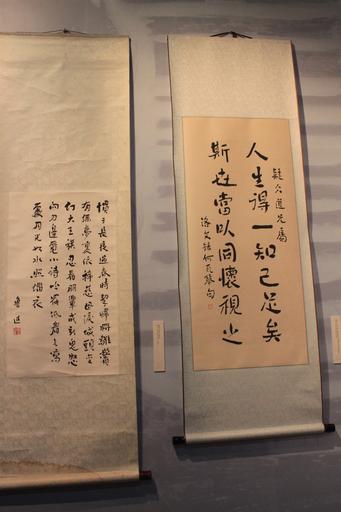 疑仌道兄屬
人生得一知己足矣
斯世當以同懷視之
洛文錄何瓦琴句
慣于長夜過春時挈婦將雛鬢
有絲夢裏依稀慈母淚城頭變
幻大王旗忍看朋輩成新鬼怒
向刀邊覓小詩吟罷低眉無寫
處月光如水照緇衣
魯迅